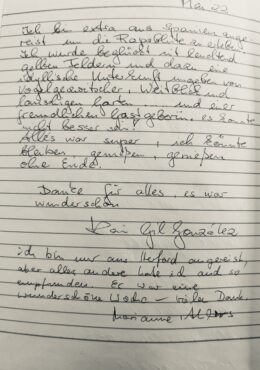 Mai 22
Ich bin extra aus Spanien ange-
reist um die Rapsblüte zu erleben
Ich wurde beglückt mit leuchtend
gelben Feldern und dazu eine
idyllische Unterkunft umgeben von
Vogelgezwitscher, Weitblick und
lauschigen Garten.... und einer
freundlichen Gastgeberin, es könnte
nicht besser sein!
Alles war super, ich könnte
bleiben, genießen, genießen
ohne Ende.
Danke für alles, es war
wunderschön
Gil González
ich bin nur aus Herford angereist,
aber alles andere habe ich auch so
empfunden. Es war eine
wunderschöne Woche – vielen Dank.
Marianne